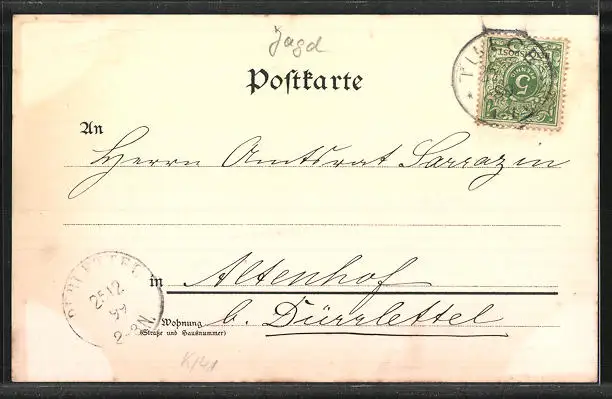 Jagd
Postkarte
An
Herrn Amtsrat Sarrazin
in Altenhof
Wohnung b. Dürrlettel
(Straße und Hausnummer)
5
25 12
99
2-3N.
K/41